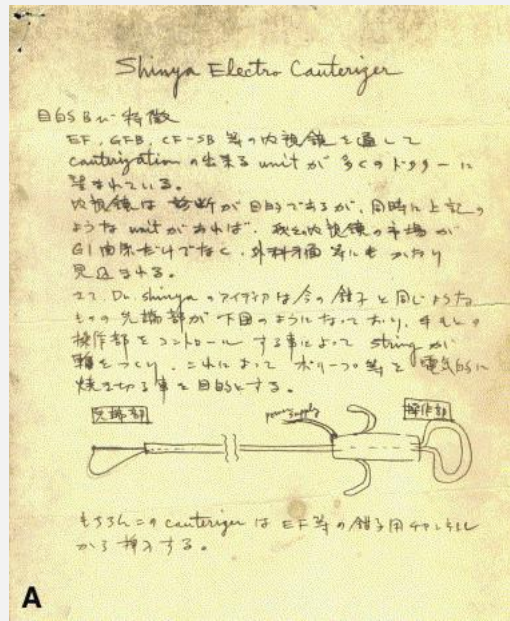 Shinya Electro Cauterizer
目的及び特徴
EF, GFB, CF-SB 等の内視鏡を通して
cauterization の出来る unit が多くのドクターに
望まれている。
内視鏡は診断が目的であるが、同時に上記の
ような unit があれば、内視鏡の市場が
GI 関係だけでなく、外科方面等にもかなり
見込まれる。
さて、Dr. Shinya のアイディアは今の鉗子と同じような
ものの先端部が下図のようになっており、手もとの
操作部をコントロールする事によって string が
輪をつくり、これによってポリープ等を電気的に
焼き切る事を目的とする。
先端部
power supply
操作部
もちろんこの cauterizer は EF 等の鉗子用チャンネル
から挿入する。
A